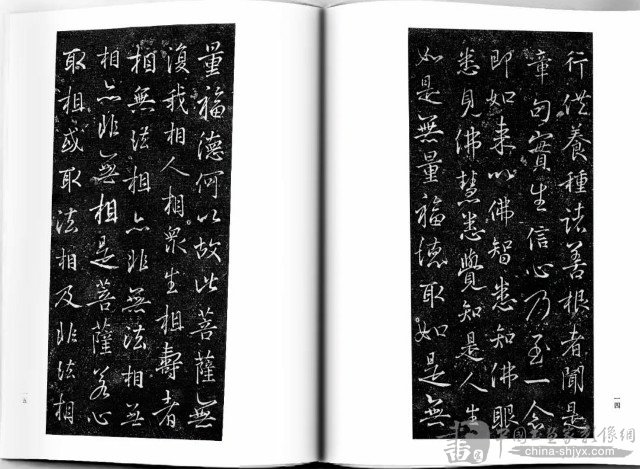 行供養種諸善根者聞是
章句實生信心乃至一念
即如来以佛智悉知佛眼
悉見佛慧悉覺知是人生
如是無量福德取如是無
一四
量福德何以故此菩薩無
復我相人相眾生相壽者
相無法相亦非無法相無
相亦非無相是菩薩若心
取相或取法相及非法相
一五
china-shjyx.com